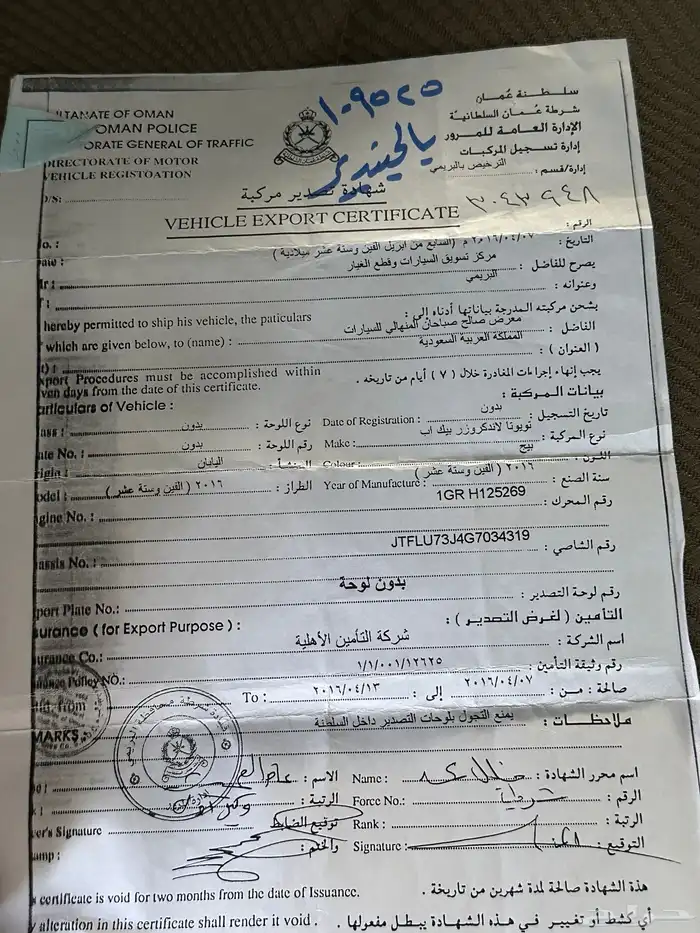 سلطنة عُمان
شرطة عُمان السلطانية
الإدارة العامة للمرور
إدارة تسجيل المركبات
إدارة/قسم : الترخيص بالبريمي
LTANATE OF OMAN
OMAN POLICE
ORATE GENERAL OF TRAFFIC
DIRECTORATE OF MOTOR
VEHICLE REGISTOATION
D/S:
١٠٩٥٢٥
شهادة تصدير مركبة
VEHICLE EXPORT CERTIFICATE
٣٠٤٣٩٤٨
الرقم :
o. :
التاريخ : ٢٠١٦/٠٤/٠٧ م (السابع من ابريل الفين وستة عشر ميلادية )
ate :
يصرح للفاضل : مركز تسويق السيارات وقطع الغيار
وعنوانه : البريمي
بشحن مركبته المدرجة بياناتها أدناه إلى :
hereby permitted to ship his vehicle, the paticulars
الفاضل : معرض صالح صباحان المنهالي للسيارات
which are given below, to (name) :
( العنوان ) : المملكة العربية السعودية
يجب إنهاء إجراءات المغادرة خلال ( ٧ ) أيام من تاريخه .
xport Procedures must be accomplished within
ven days from the date of this certificate.
بيانات المركبة :
articulars of Vehicle :
تاريخ التسجيل : بدون Date of Registration :
نوع اللوحة : بدون
ass :
نوع المركبة : تويوتا لاندكروزر بيك اب Make :
رقم اللوحة : بدون
ate No. :
اللون : بيج Colour:
المنشأ : اليابان
rigin :
سنة الصنع : ٢٠١٦ ( الفين وستة عشر ) Year of Manufacture :
الطراز : ٢٠١٦ ( الفين وستة عشر )
odel :
رقم المحرك : 1GR H125269
ngine No. :
رقم الشاصي : JTFLU73J4G7034319
assis No. :
رقم لوحة التصدير : بدون لوحة
port Plate No.:
التأمين ( لغرض التصدير ) :
surance (for Export Purpose) :
اسم الشركة : شركة التأمين الأهلية
surance Co.:
رقم وثيقة التأمين : ١/١/٠٠١/١٢٦٢٥
urance Policy NO.:
صالحة : من : ٢٠١٦/٠٤/٠٧ إلى : ٢٠١٦/٠٤/١٣ To :
lid, from
ملاحظات : يمنع التجول بلوحات التصدير داخل السلطنة
MARKS:
اسم محرر الشهادة : Name :
الاسم :
الرقم : Force No.:
الرتبة :
الرتبة : Rank :
توقيع الضابط
er's Signature
التوقيع : Signature :
والختم :
amp :
هذه الشهادة صالحة لمدة شهرين من تاريخة .
certificate is void for two months from the date of Issuance.
أي كشط أو تغيير في هذه الشهادة يبطل مفعولها .
y alteration in this certificate shall render it void .